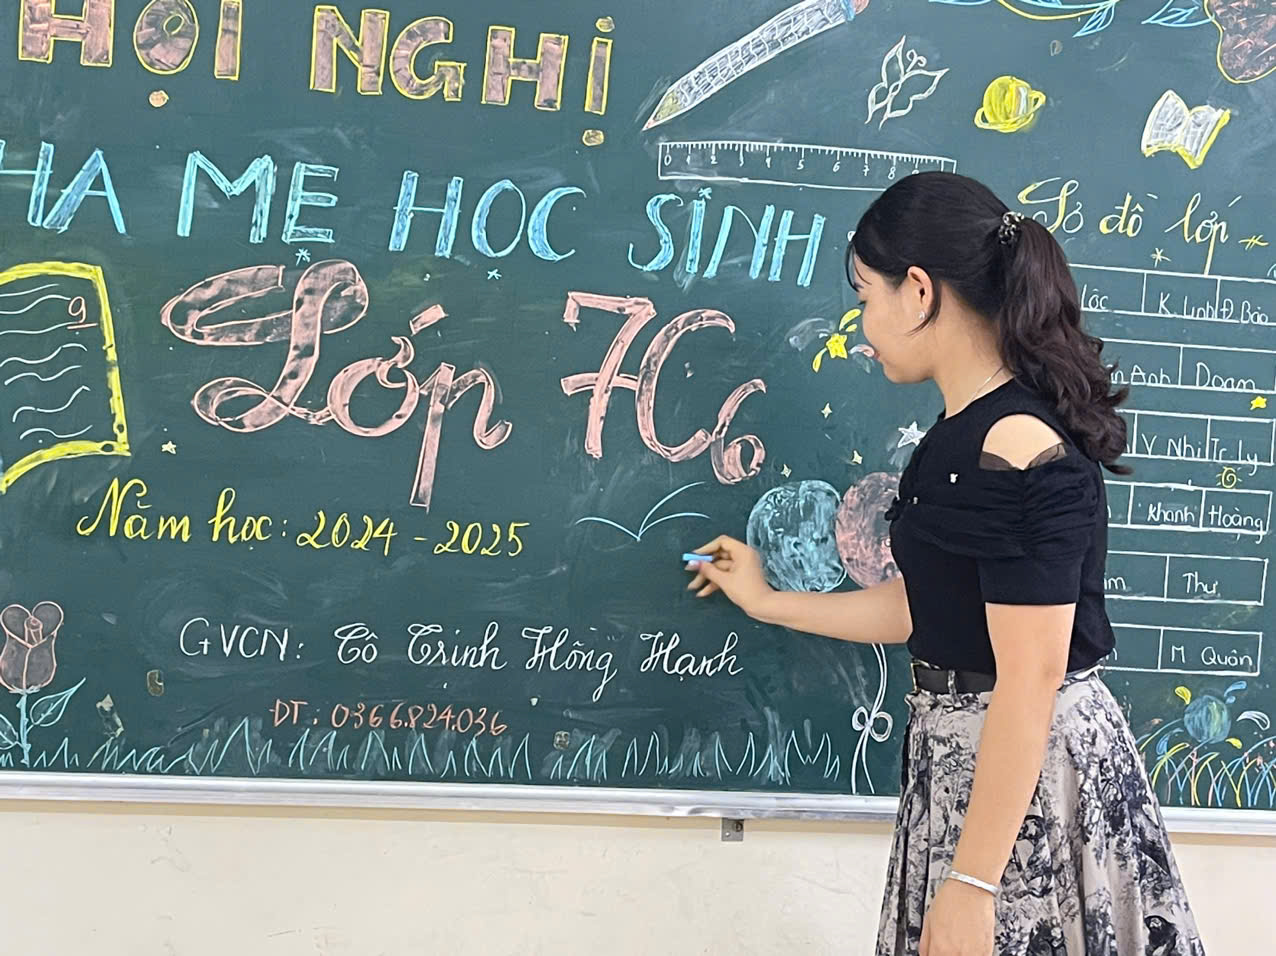 HỘI NGHỊ
HA MẸ HỌC SINH
Lớp 7C6
9
Năm học: 2024 - 2025
GVCN: Cô Trịnh Hồng Hạnh
ĐT: 0366.824.036
0 1 2 3 4 5 6 7 8
Sơ đồ lớp
Lộc K. Linh Đ. Bảo
Anh Doam
V. Nhi Tr. Ly
Khanh Hoàng
Thư
M Quân